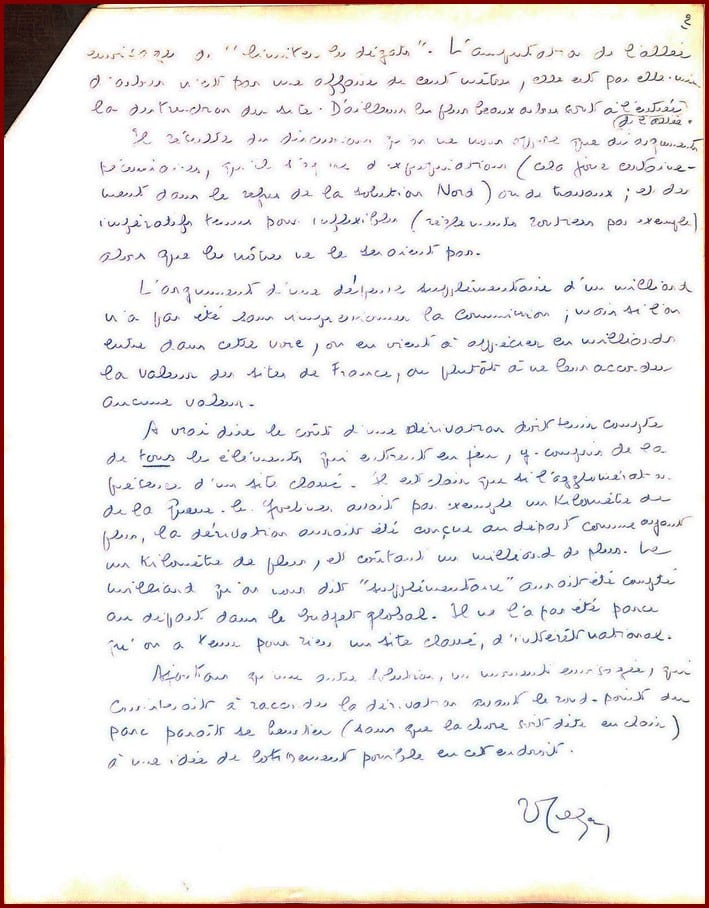 2
envisagé de "limiter les dégâts". L'amputation de l'allée
d'arbres n'est pas une affaire de cent mètres, elle est par elle-même
la destruction du site. D'ailleurs les plus beaux arbres sont à l'entrée
de l'allée.
Il résulte des discussions qu'on ne nous oppose que des arguments
pécuniaires, qu'il s'agisse d'expropriations (cela joue certaine-
ment dans le refus de la solution Nord) ou de travaux ; et des
impératifs tenus pour inflexibles (règlements routiers par exemple)
alors que les nôtres ne le seraient pas.
L'argument d'une dépense supplémentaire d'un milliard
n'a pas été sans impressionner la Commission ; mais si l'on
entre dans cette voie, on en vient à apprécier en milliards
la valeur des sites de France, ou plutôt à ne leur accorder
aucune valeur.
A vrai dire le coût d'une dérivation doit tenir compte
de tous les éléments qui entrent en jeu, y compris de la
présence d'un site classé. Il est clair que si l'agglomération
de la Queue-les-Yvelines avait par exemple un kilomètre de
plus, la dérivation aurait été conçue au départ comme ayant
un kilomètre de plus, et coûtant un milliard de plus. Le
milliard qu'on nous dit "supplémentaire" aurait été compté
au départ dans le budget global. Il ne l'a pas été parce
qu'on a tenu pour rien un site classé, d'intérêt national.
Ajoutons qu'une autre solution, un moment envisagée, qui
consisterait à raccorder la dérivation avant le rond-point du
parc paraît se heurter (sans que la chose soit dite en clair)
à une idée de lotissement possible en cet endroit.